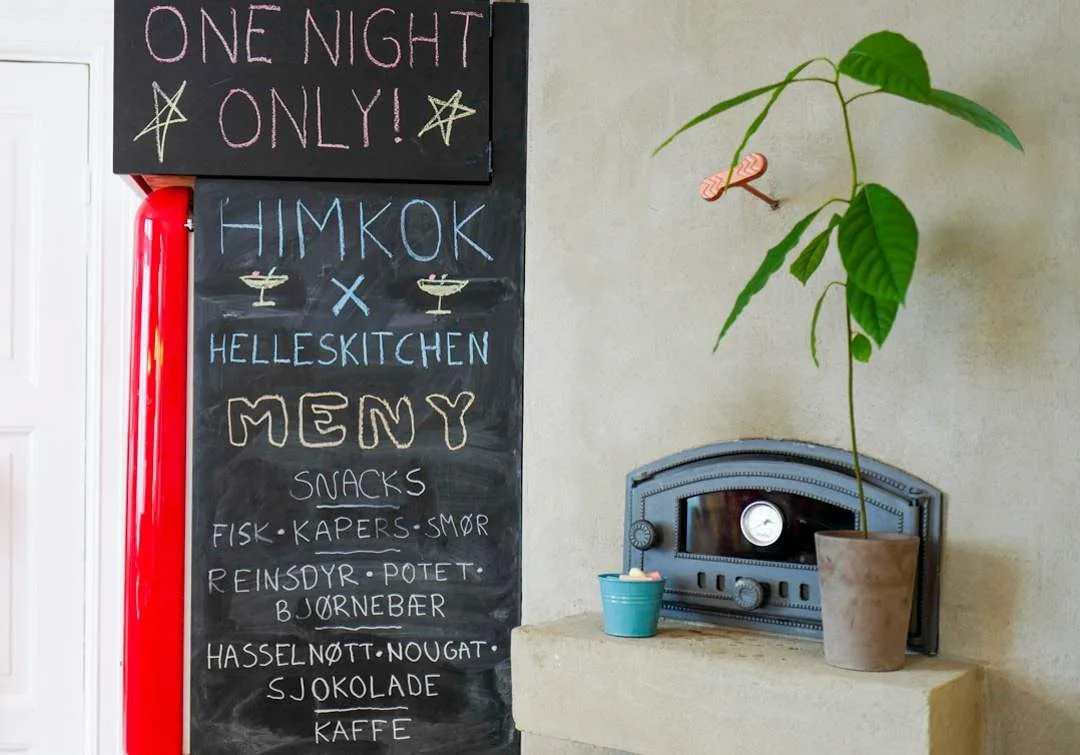 ONE NIGHT
ONLY!
HIMKOK
X
HELLESKITCHEN
MENY
SNACKS
FISK · KAPERS · SMØR
REINSDYR · POTET ·
BJØRNEBÆR
HASSELNØTT · NOUGAT ·
SJOKOLADE
KAFFE